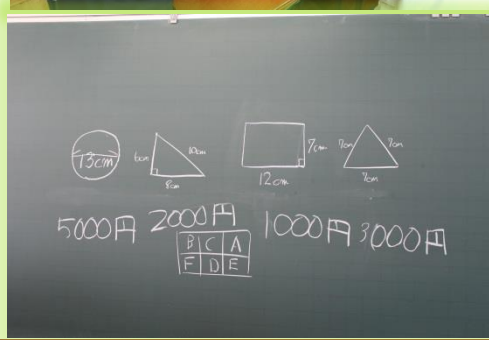 13cm 6cm 10cm 8cm 7cm 12cm 7cm 7cm 7cm
5000円 2000円 1000円 3000円
B C A
F D E